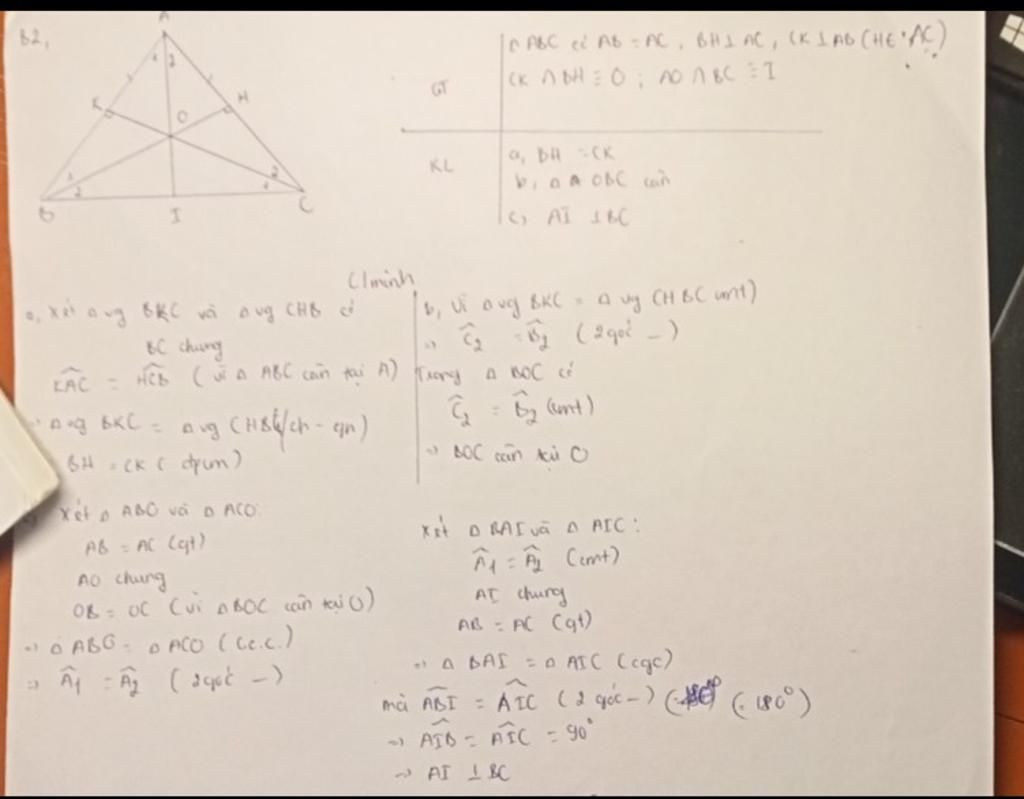 B2,
A
K
H
O
B
I
C
GT
Δ ABC có AB = AC, BH ⊥ AC, CK ⊥ AB (H ∈ AC)
CK ∩ BH ≡ O ; AO ∩ BC ≡ I
KL
a, BH = CK
b, Δ OBC cân
c, AI ⊥ BC
C/minh
a, Xét Δ vg BKC và Δ vg CHB có
BC chung
KAC = HCB (vì Δ ABC cân tại A)
-> Δ vg BKC = Δ vg CHB (ch - gn)
BH = CK (đpcm)
b, Vì Δ vg BKC = Δ vg CHB (cmt)
=> C2 = B2 (2 góc _)
Trong Δ BOC có
C2 = B2 (cmt)
=> BOC cân tại O
Xét Δ ABO và Δ ACO:
AB = AC (gt)
AO chung
OB = OC (vì Δ BOC cân tại O)
=> Δ ABO = Δ ACO (c.c.c.)
=> A1 = A2 (2 góc _)
Xét Δ BAI và Δ AIC:
A1 = A2 (cmt)
AI chung
AB = AC (gt)
=> Δ BAI = Δ AIC (cgc)
mà ABI = AIC (2 góc _) (= 180°)
=> AIB = AIC = 90°
=> AI ⊥ BC